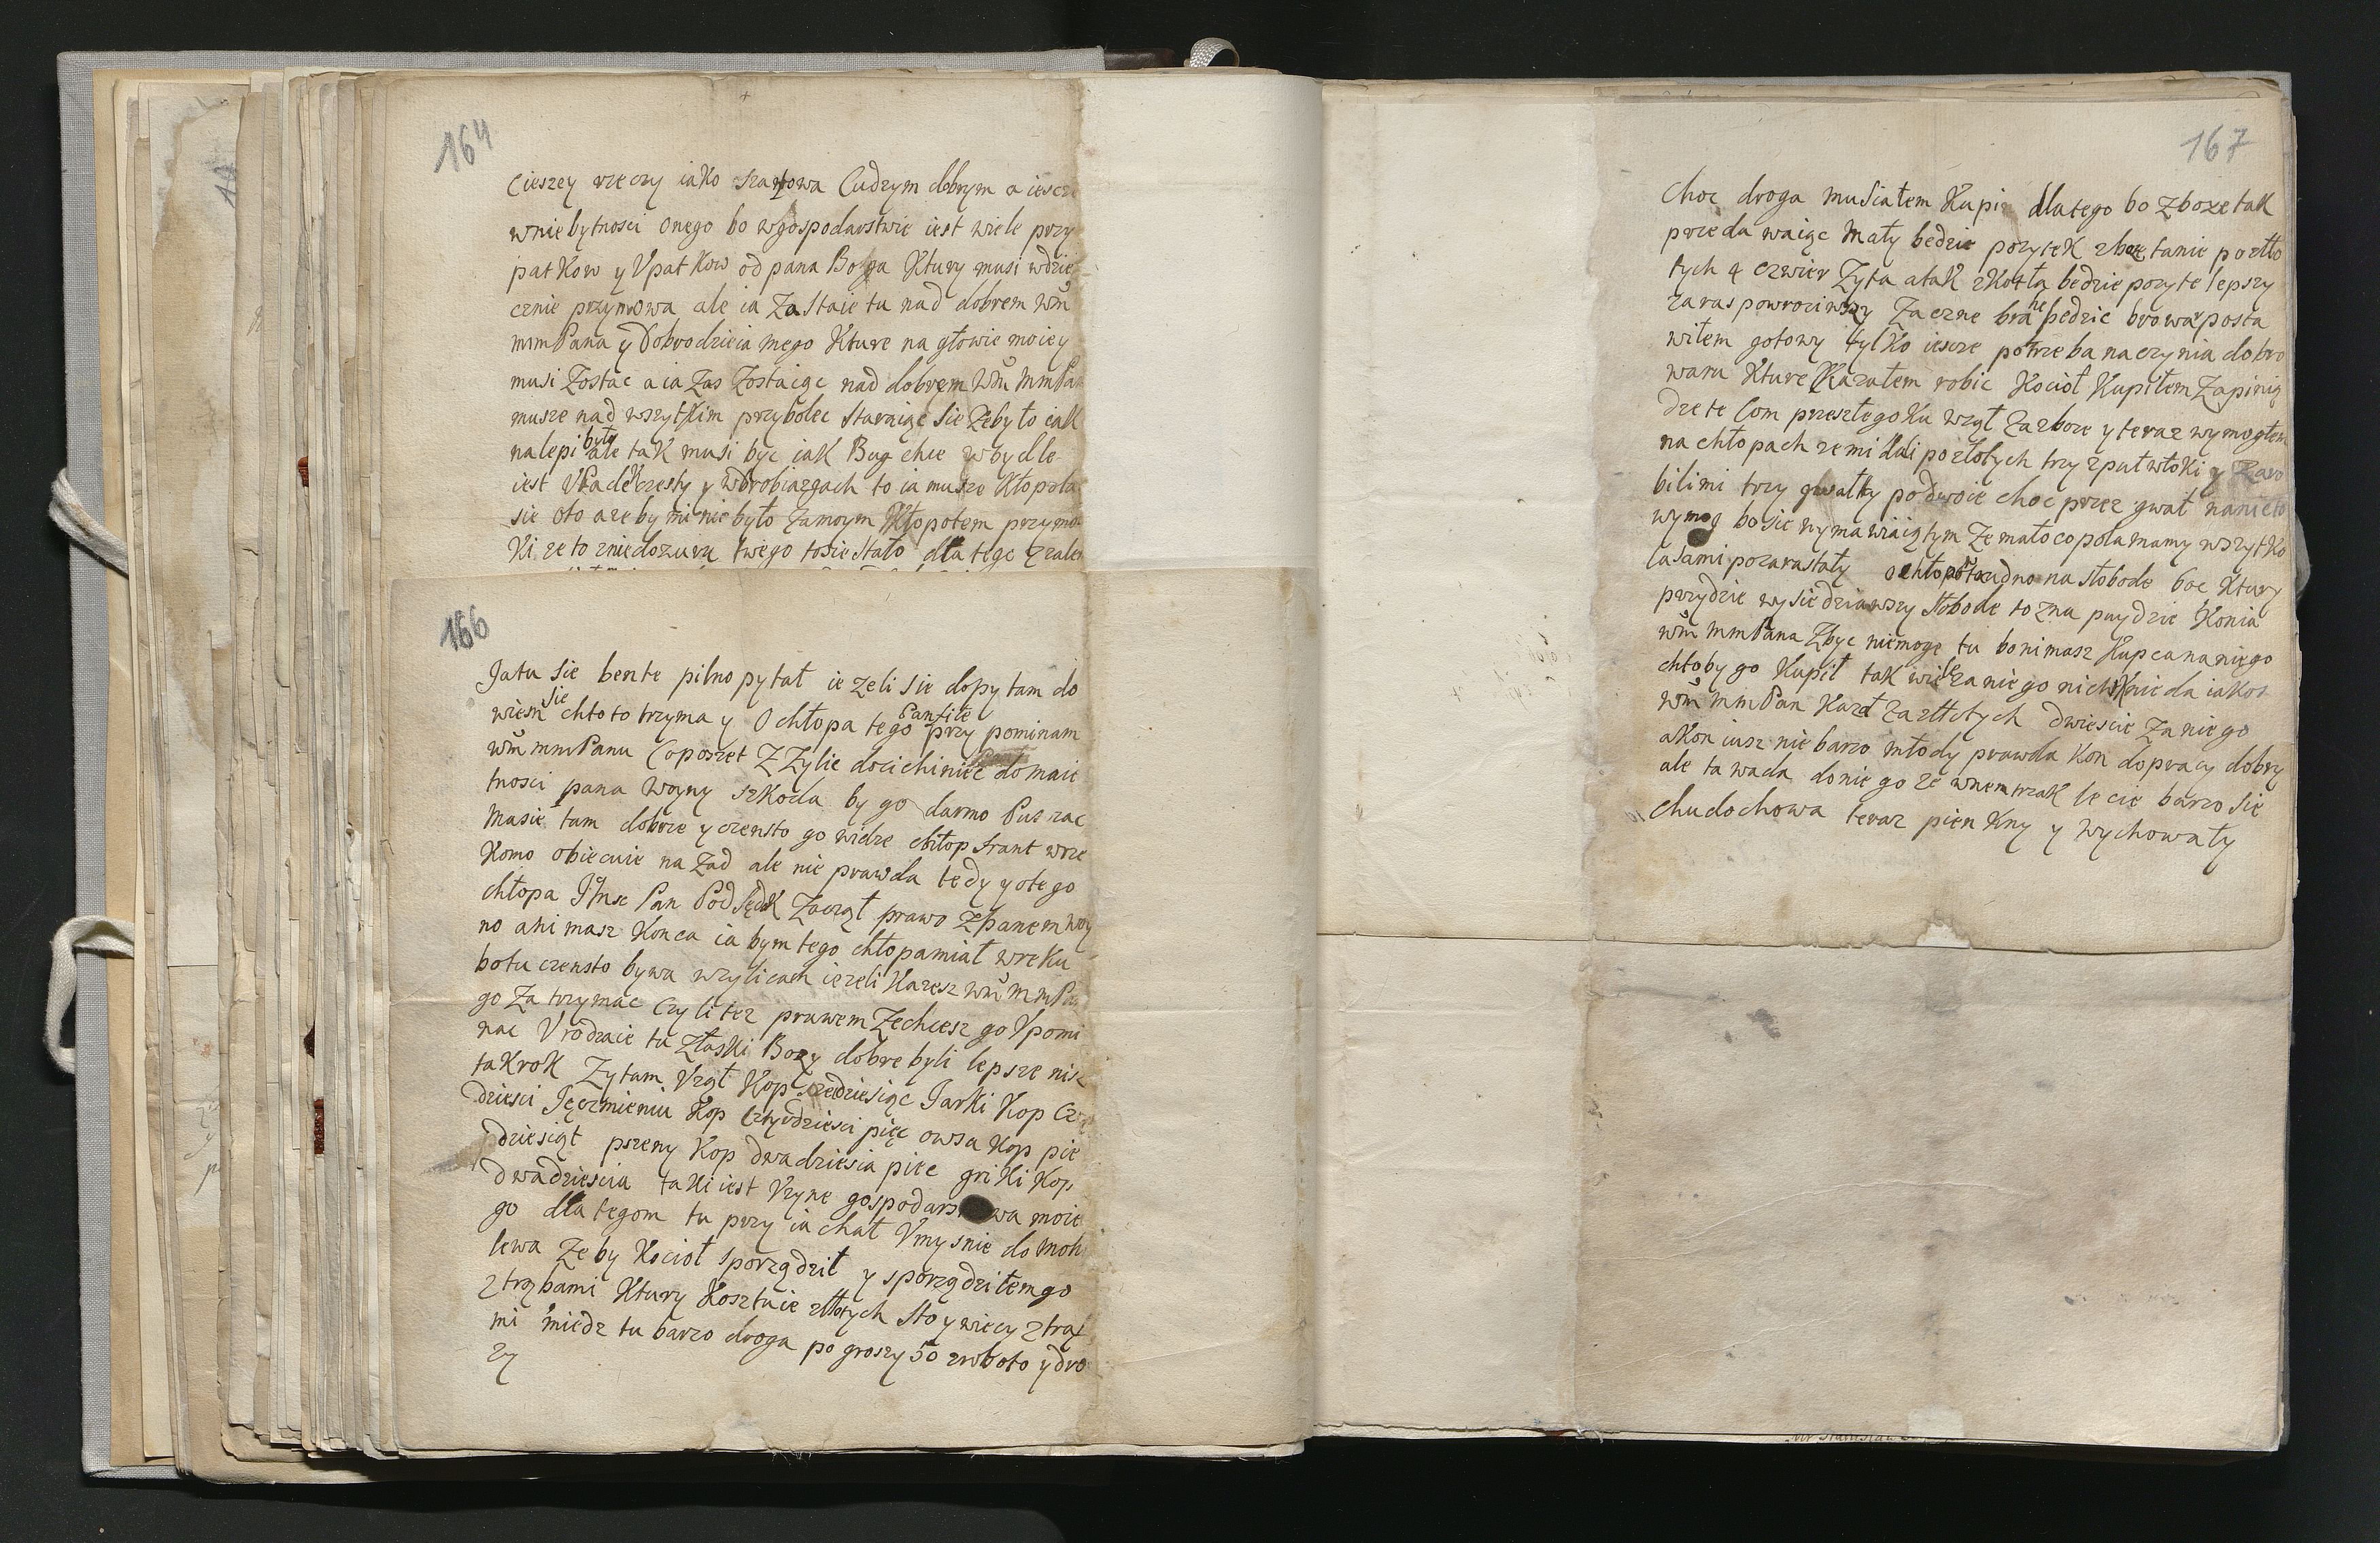 164
Cieszey rzeczy iako szarzowa Cudzym dobrym a iescze
wniebytnosci onego bo wgospodarstwie iest wiele przy
patkow y Vpatkow od pana Boga Ktury musi wdzie
cznie przymowa ale ia Zastaie tu nad dobrem wm̃
mmPana y Dobrodzieia mego Kture na głowie moiey
musi Zostac a ia Zas Zostaiąc nad dobrem Wm̃ MmPa
musze nad wszytkim przybolec staraiąc sie Zeby to call
nalepi było ale tak musi byc iak Bug chce wbydle
iest Vpadek czesty y wdrobiazgach to ia musze Kłopota
sie oto azeby mi nie było zamoym Kłopotem przymo
Ki ze to zniedozuru twego tosie stało dla tego
166
Ja tu sie bente pilno pytał iezeli sie dopytam do
wiem sie chto to trzyma y O chłopa tego Panfile przypominam
wm̃ mmPanu Coposzet Z Zylic docichinicz do maie
tnosci pana Woyny szkoda by go darmo Puszac
Masie tam dobrze y czensto go widze chłop frant wrze
Komo obiecuie na Zad ale nie prawda tedy y otego
chłopa JMsc Pan Podsędek Zaczął prawo Zpanem woy
no animasz Konca ia bym tego chłopamiał wreku
botu czensto bywa wzylicach iezeli Karesz wm̃ MmPa
go Zatrzymac Czyli tez prawem Zechcesz go Vpomi
nac Vrodzaie tu Złaski Bozy dobre byli lepsze nisz
takrok Zytam Vzął Kop szedziesiąc Jarki Kop Cz
dziesci Jęczmieniu Kop Czydziesci pięc owsa Kop pie
dziesiąt pszeny Kop dwadziesia piec griki Kop
dwadziescia taki iest Vzyne gospodarstwa moie
go dla tegom tu przyiachał Vmysnie do Moh
lewa Zeby Kocioł sporządził y sporządziłem go
Ztrąbami Ktury Kosztuie złłotych sto y wiecy ztrą
mi miedz tu barzo droga po groszy 50 zroboto y dro
zy
167
Choc droga musiałem Kupi dlatego bo Zboze tak
przedawaiąc Mały bedzie pozytek zboze tanie pozłło
tych 4 czwier Zyta atak zkotła bedzie pozyte lepszy
zaras powrociwszy Zaczne bra he pedzie browar posta
wiłem gotowy tylko iescze potrzeba naczynia dobro
waru Kture Kazałem robic Kocioł Kupiłem Zapinią
dze te Com przeszłegoKu wzął Zazboze y teraz wymogłem
na chłopach ze mi dali pozłotych trzy zpułwłoki y Zaro
bilimi trzy gwałty podwoie choc przez gwał nanieto
wymog bo sie wymawiaiątym Ze mało co pola mamy wszytko
lasami pozarastały o chłopow trudno na słobode boc Ktury
przydzie wysiedziawszy słobode to zna puydzie Konia
wm̃ mmPana Zbyc niemoge tu bo nimasz Kupca naniego
chtoby go Kupił tak wiele za niego nicht nie da iakos
wm̃ mmPan Kazał Zazłłotych dwiescie Za niego
a Kon iusz nie barzo młody prawda Kon dopracy dobry
ale ta wada do niego ze wnemrzak lecie barzo sie
chudochowa teraz pienkny y wychowały